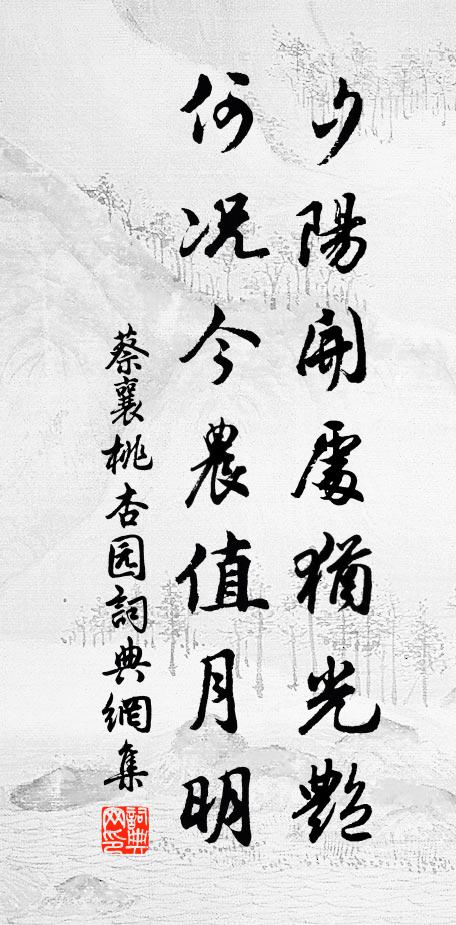 夕陽開處猶光艷
何况今農值月明
蔡襄桃杏园詞典網集
詞典网印